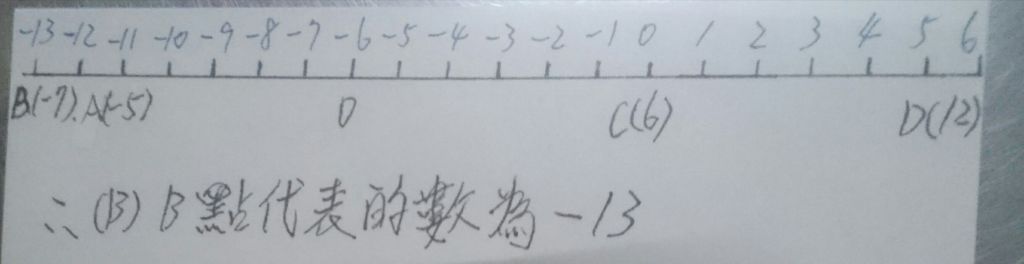 -13 -12 -11 -10 -9 -8 -7 -6 -5 -4 -3 -2 -1 0 1 2 3 4 5 6
B(-7). A(-5) 0 C(6) D(12)
∴(B) B點代表的數為-13